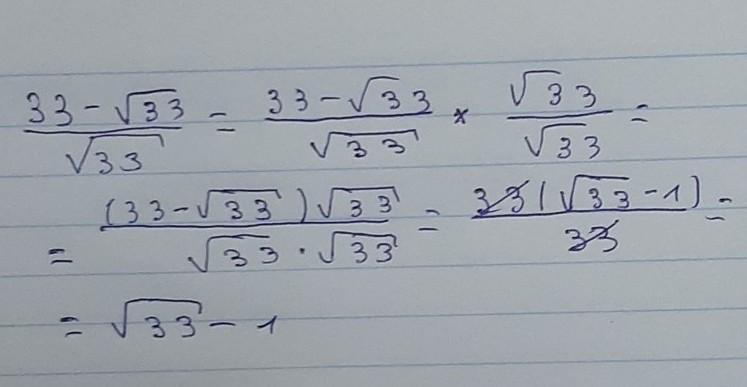 (33-√33)/√33 = (33-√33)/√33 * √33/√33 =
= ((33-√33)√33)/(√33·√33) = (33(√33-1))/33 =
= √33-1